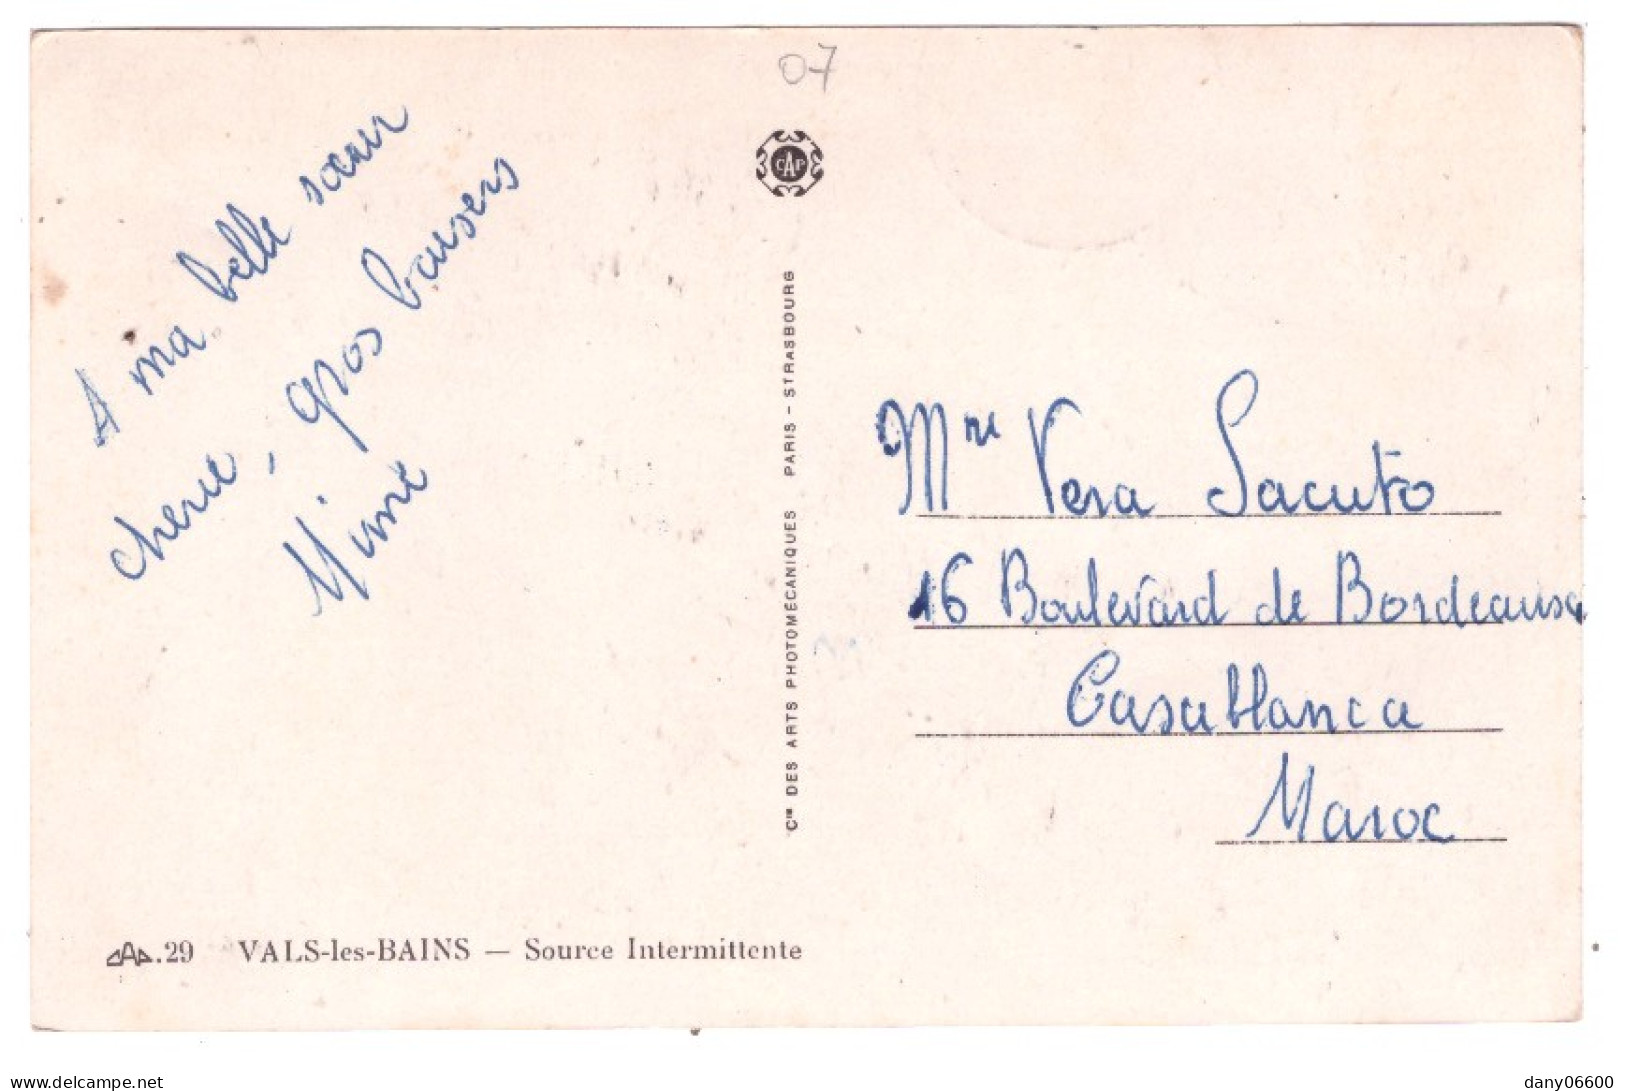 07
CAP
A ma belle sœur
cherie, gros baisers
Mime
Cie DES ARTS PHOTOMÉCANIQUES PARIS - STRASBOURG
Mme Vera Sacuto
16 Boulevard de Bordeaux
Casablanca
Maroc
CAP.29 VALS-les-BAINS — Source Intermittente
delcampe.net
dany06600